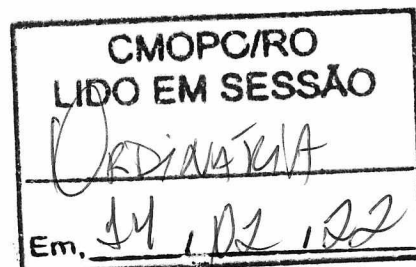 CMOPC/RO
LIDO EM SESSÃO
ORDINÁRIA
Em, 14 / 02 / 22